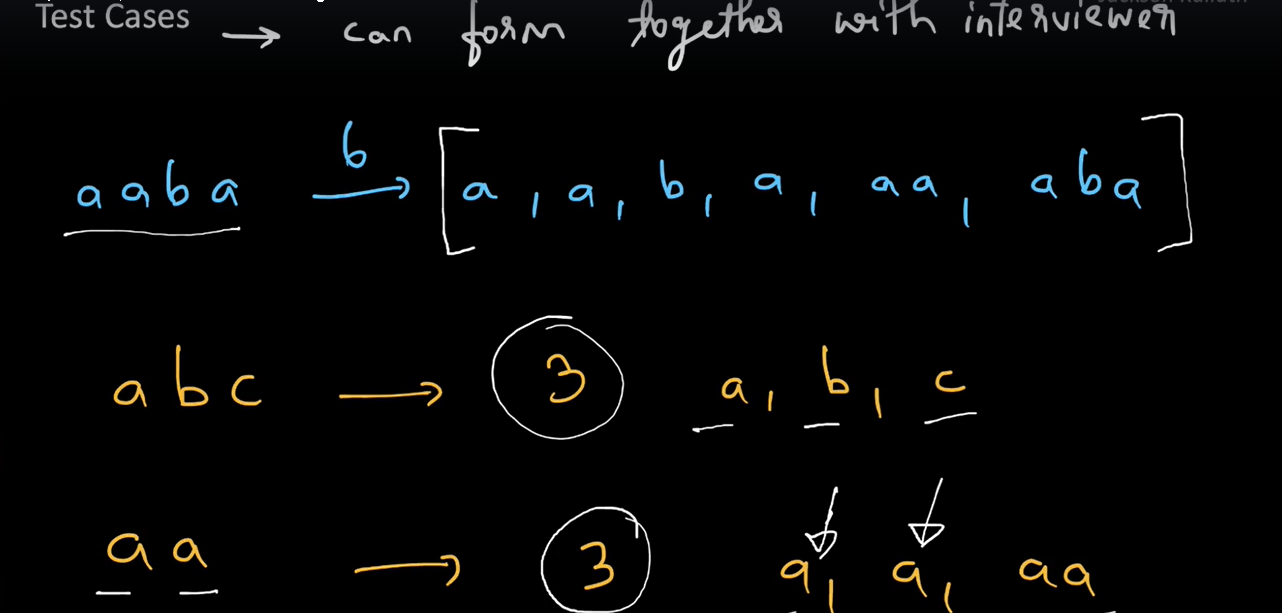 Test Cases → can form together with interviewer
aaba b→ [a, a, b, a, aa, aba]
abc → 3 a, b, c
aa → 3 a, a, aa